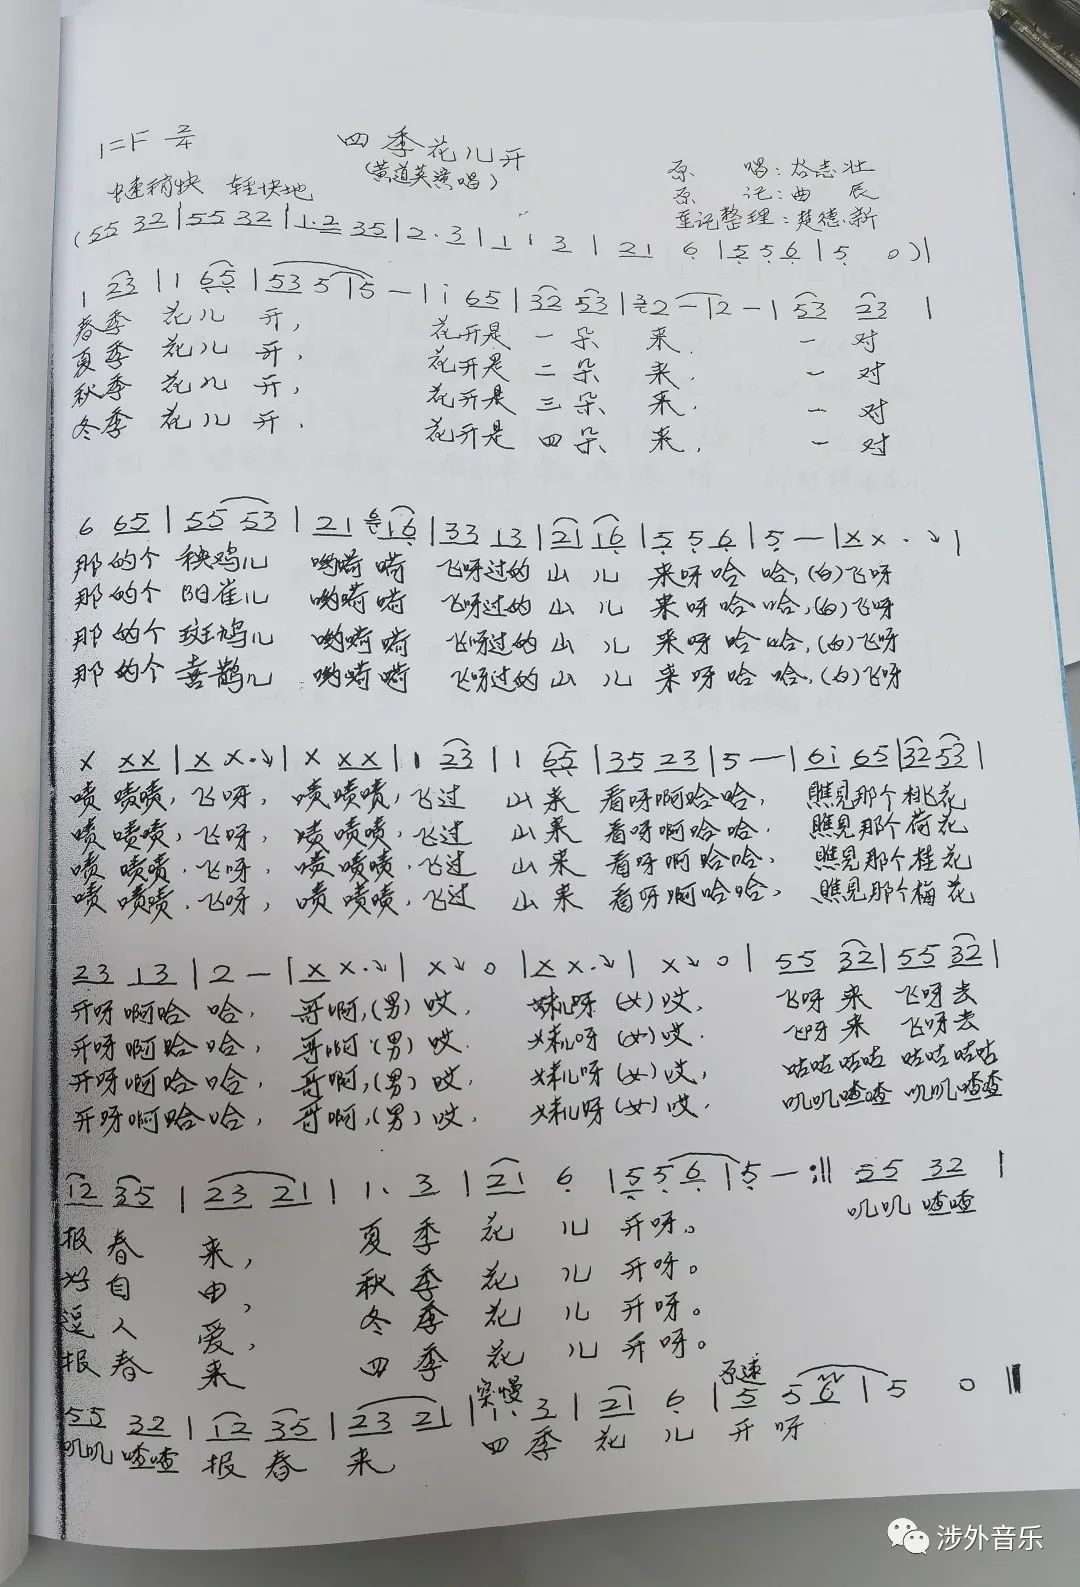 1=F 2/4
四季花儿开
(黄道英演唱)
原 唱:谷志壮
原 记:曲 辰
重记整理:楚德新
中速稍快 轻快地
(55 32|55 32|1·2 35|2·3|1 1 3|21 6|556|5 0)|
1 23|1 65|53 5|5 —|i 65|32 53|32—|2—|53 23|
春季 花儿 开, 花开是 一朵 来. 一 对
夏季 花儿 开, 花开是 二朵 来. 一 对
秋季 花儿 开, 花开是 三朵 来. 一 对
冬季 花儿 开. 花开是 四朵 来, 一 对
6 65|55 53|21 616|33 13|21 16|556|5—|xx·↘|
那的个 秧鸡儿 哟嗬嗬 飞呀过的 山 儿 来呀哈 哈,(白)飞呀
那的个 阳雀儿 哟嗬嗬 飞呀过的 山 儿 来呀哈哈,(白)飞呀
那的个 斑鸠儿 哟嗬嗬 飞呀过的 山 儿 来呀哈哈,(白)飞呀
那的个 喜鹊儿 哟嗬嗬 飞呀过的 山 儿 来呀哈 哈,(白)飞呀
x xx|x x·↘|x xx|1 23|1 65|35 23|5—|6i 65|32 53|
啧 啧啧,飞呀, 啧啧啧,飞过 山来 看呀啊哈哈, 瞧见那个桃花
啧 啧啧,飞呀, 啧啧啧,飞过 山来 看呀啊哈哈. 瞧见那个荷花
啧 啧啧.飞呀, 啧啧啧.飞过 山来 看呀啊哈哈, 瞧见那个桂花
啧 啧啧.飞呀, 啧啧啧,飞过 山来 看呀啊哈哈, 瞧见那个梅花
23 13|2—|x x·↘|x↘0|x x·↘|x↘0|55 32|55 32|
开呀啊哈 哈, 哥啊,(男)哎, 妹儿呀(女)哎, 飞呀来 飞呀去
开呀啊哈哈, 哥啊(男)哎. 妹儿呀(女)哎. 飞呀来 飞呀去
开呀啊哈哈, 哥啊,(男)哎, 妹儿呀(女)哎, 咕咕咕咕 咕咕咕咕
开呀啊哈哈, 哥啊,(男)哎. 妹儿呀(女)哎. 叽叽喳喳 叽叽喳喳
12 35|23 21|1· 3|21 6|556|5—:‖55 32|
报春 来, 夏季 花 儿 开呀。 叽叽喳喳
好自 由, 秋季 花 儿 开呀。
逗人 爱, 冬季 花 儿 开呀。
报春 来 四季 花 儿 开呀。
突慢 原速
55 32|12 35|23 21|1· 3|21 6|5 5 6|5 0‖
叽叽喳喳 报春 来 四季 花 儿 开呀
涉外音乐